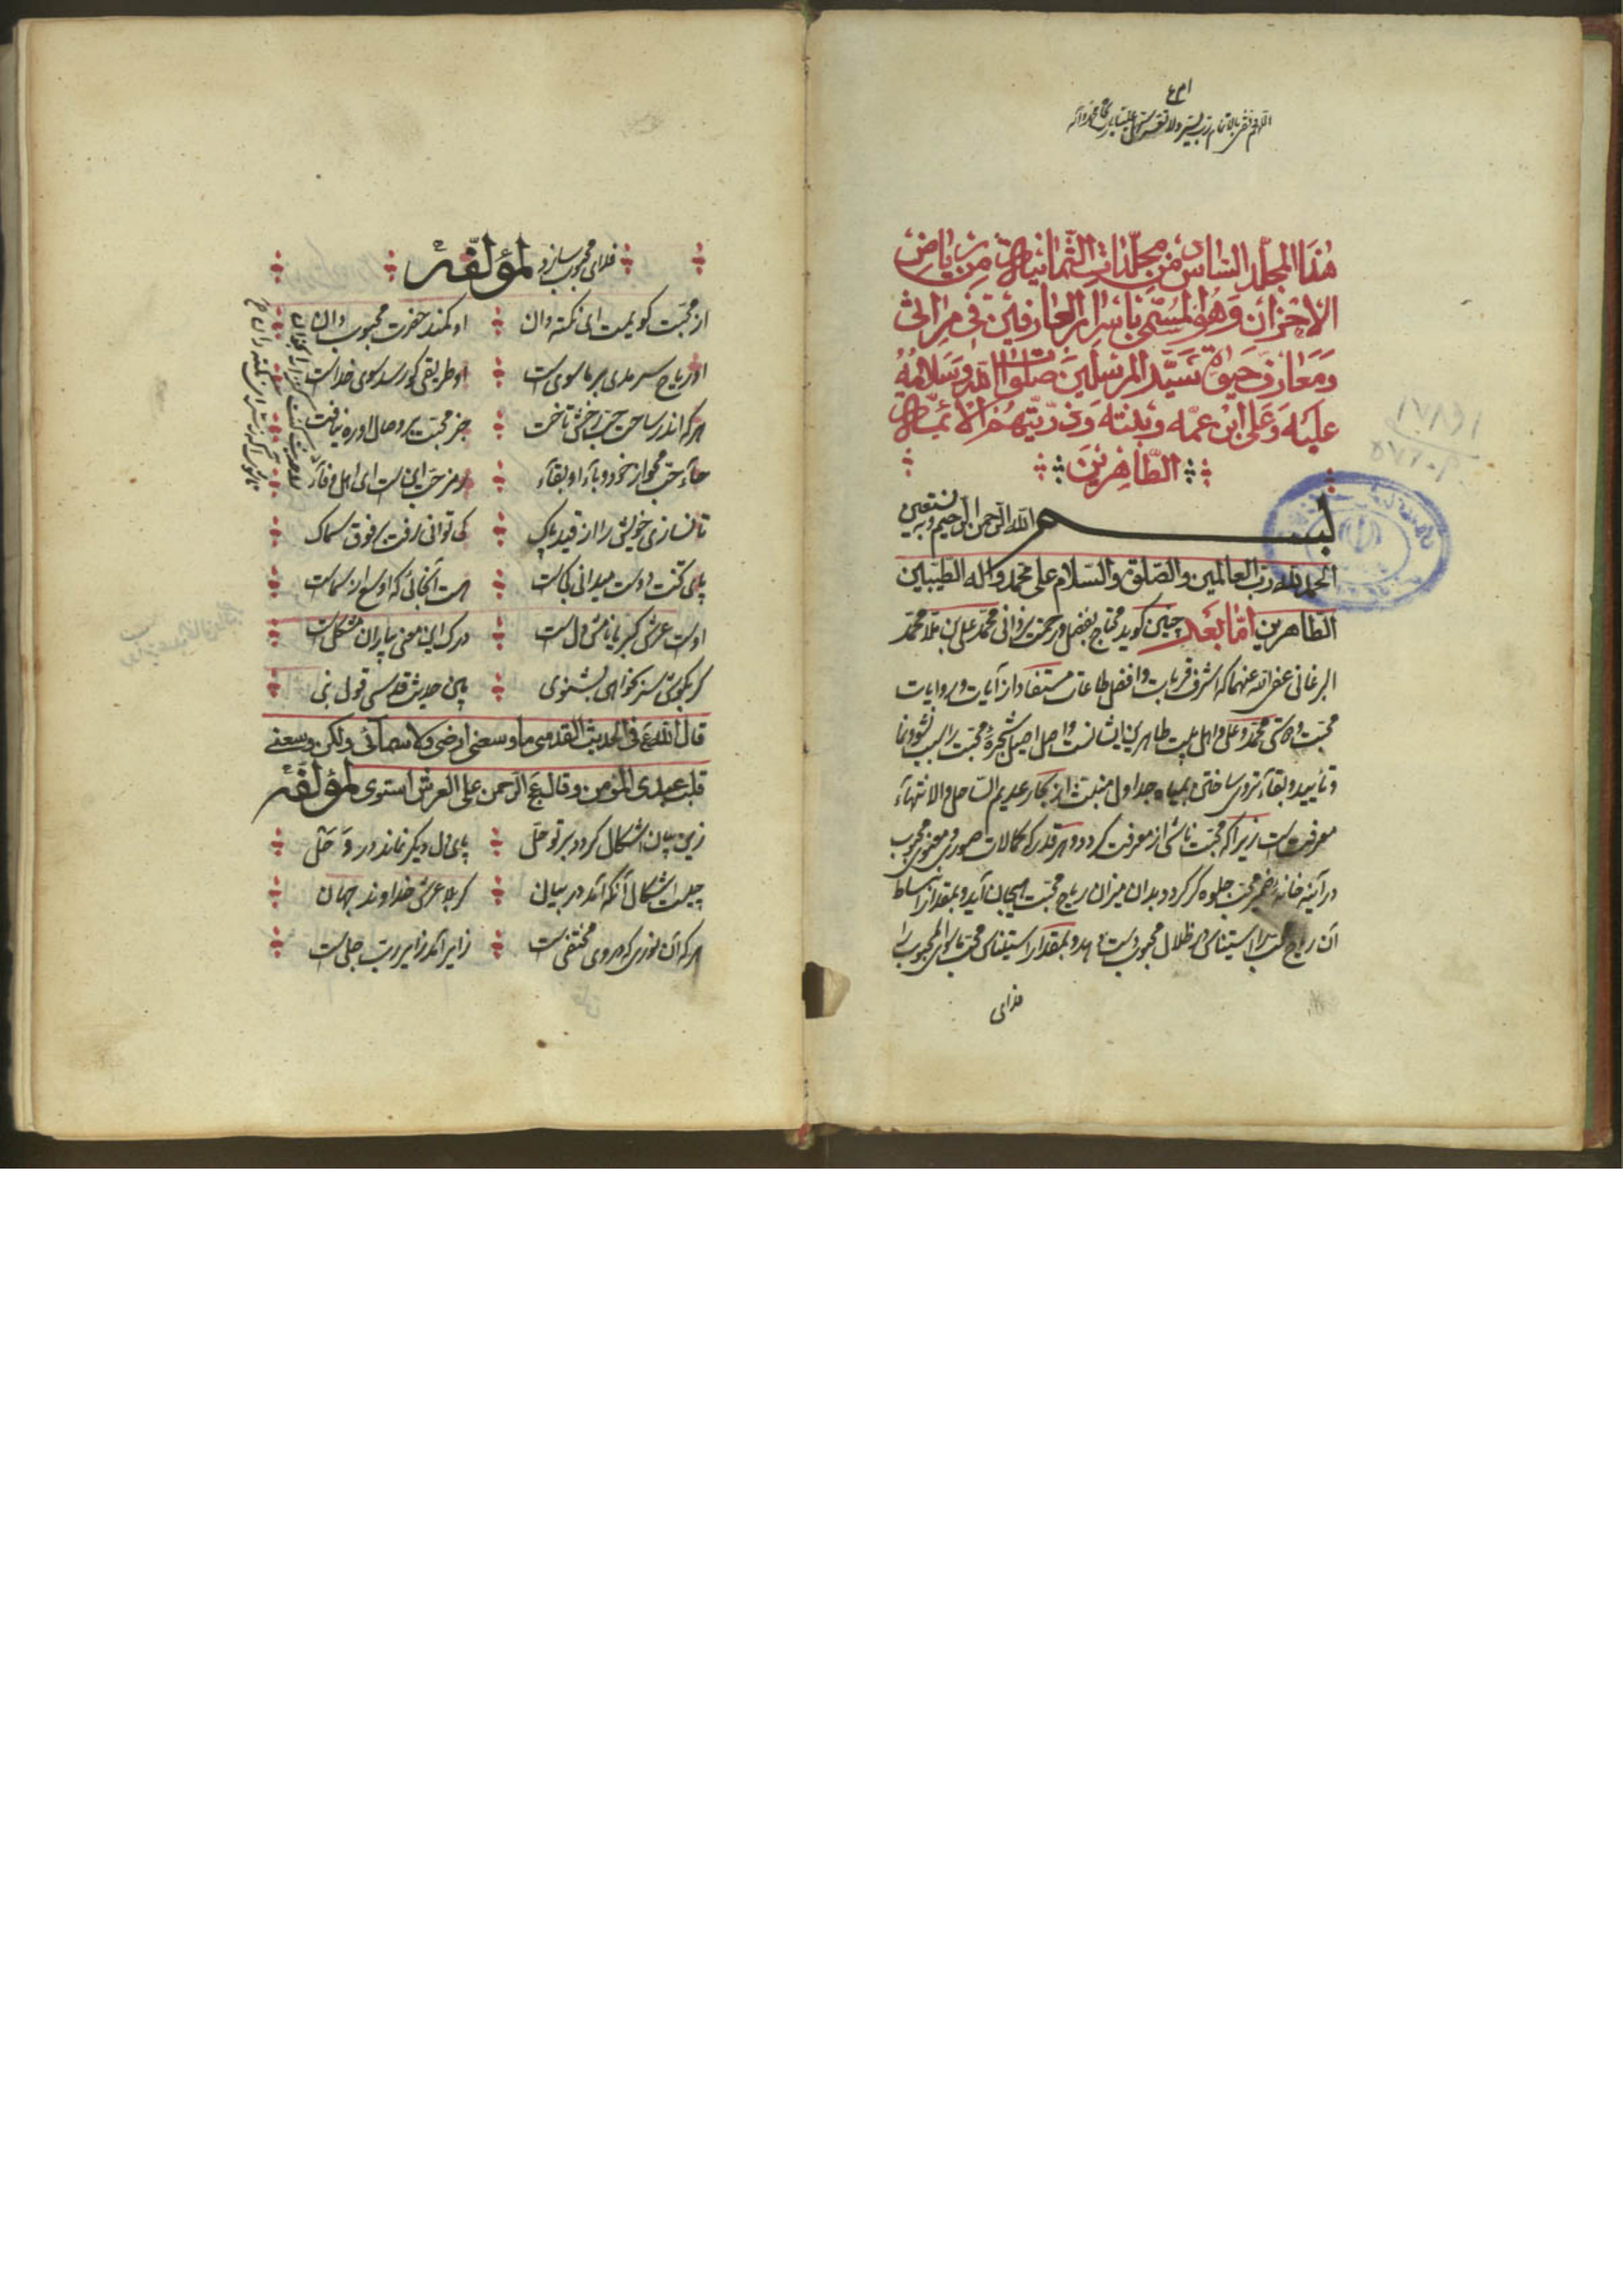 هذا المجلد السادس من مجلدات الثمانية من رياض
الاحزان وهو المسمى باسرار العارفين فى مراثى
ومعارف حيوة سيد المرسلين صلوات الله وسلامه
عليه وعلى ابن عمه وبنته وذريتهم الائمة
الطاهرين
بسم الله الرحمن الرحيم وبه نستعين
الحمد لله رب العالمين والصلوة والسلام على محمد واله الطيبين
الطاهرين اما بعد چنين كويد محتاج بفضل ورحمت يزدانى محمد على بن ملا محمد
البرغانى عفى الله عنهما كه اشرف قربات وافضل طاعات مستفاد از آيات وروايات
محبت ودوستى محمد وعلى واهل بيت طاهرين ايشانست واصل اصيل شجره محبت را سبب نشو ونما
وتأييد وبقاء تروى ساختن بمياه جداول منبعث از بحار عديم الساحل والانتهاء
معرفت است زيرا كه محبت ناشى از معرفت كردد وهر قدر كه كمالات صورى ومعنوى محبوب
در آينه خانه ضمير محب جلوه كر كردد بدان ميزان رياح محبت بهيجان آيد وبمقدار انبساط
آن رياح محب را استيناس در ظلال محبوب دست دهد وبمقدار استيناس محب ماسواى المحبوب را
فداى
فداى محبوب سازد لمؤلفه
از محبت كويمت اى نكته دان او كمند حضرت محبوب دان
او رياح سرمدى بر ماسوى است او طريقى كو رسد سوى خداست
هر كه اندر ساحت حب رخش تاخت جز محبت بر وصال او ره نيافت
حاء حب محو از خود وباء او بقاء رمز حب اين است اى اهل وفا
تا نسازى خويش را از قيد پاك كى توانى رفت بر فوق سماك
پاى تخت دوست ميدانى كجاست هست آنجائى كه اوسع از سماست
اوست عرش كبريا نامش دل است درك اين معنى بياران مشكل است
كر بكويت سر نخواهى بشنوى پس حديث قدسى قول نبى
قال الله تع فى الحديث القدسى ما وسعنى ارضى ولا سمائى ولكن وسعنى
قلب عبدى المؤمن وقال تع الرحمن على العرش استوى لمؤلفه
زين بيان اشكال كردد بر تو حل پاى دل ديكر نماند در وحل
چيست اشكال آنكه آمد در بيان كربلا عرش خداوند جهان
هر كه آن نورى كه در وى مختفى است زاير آمد زاير رب جلى است